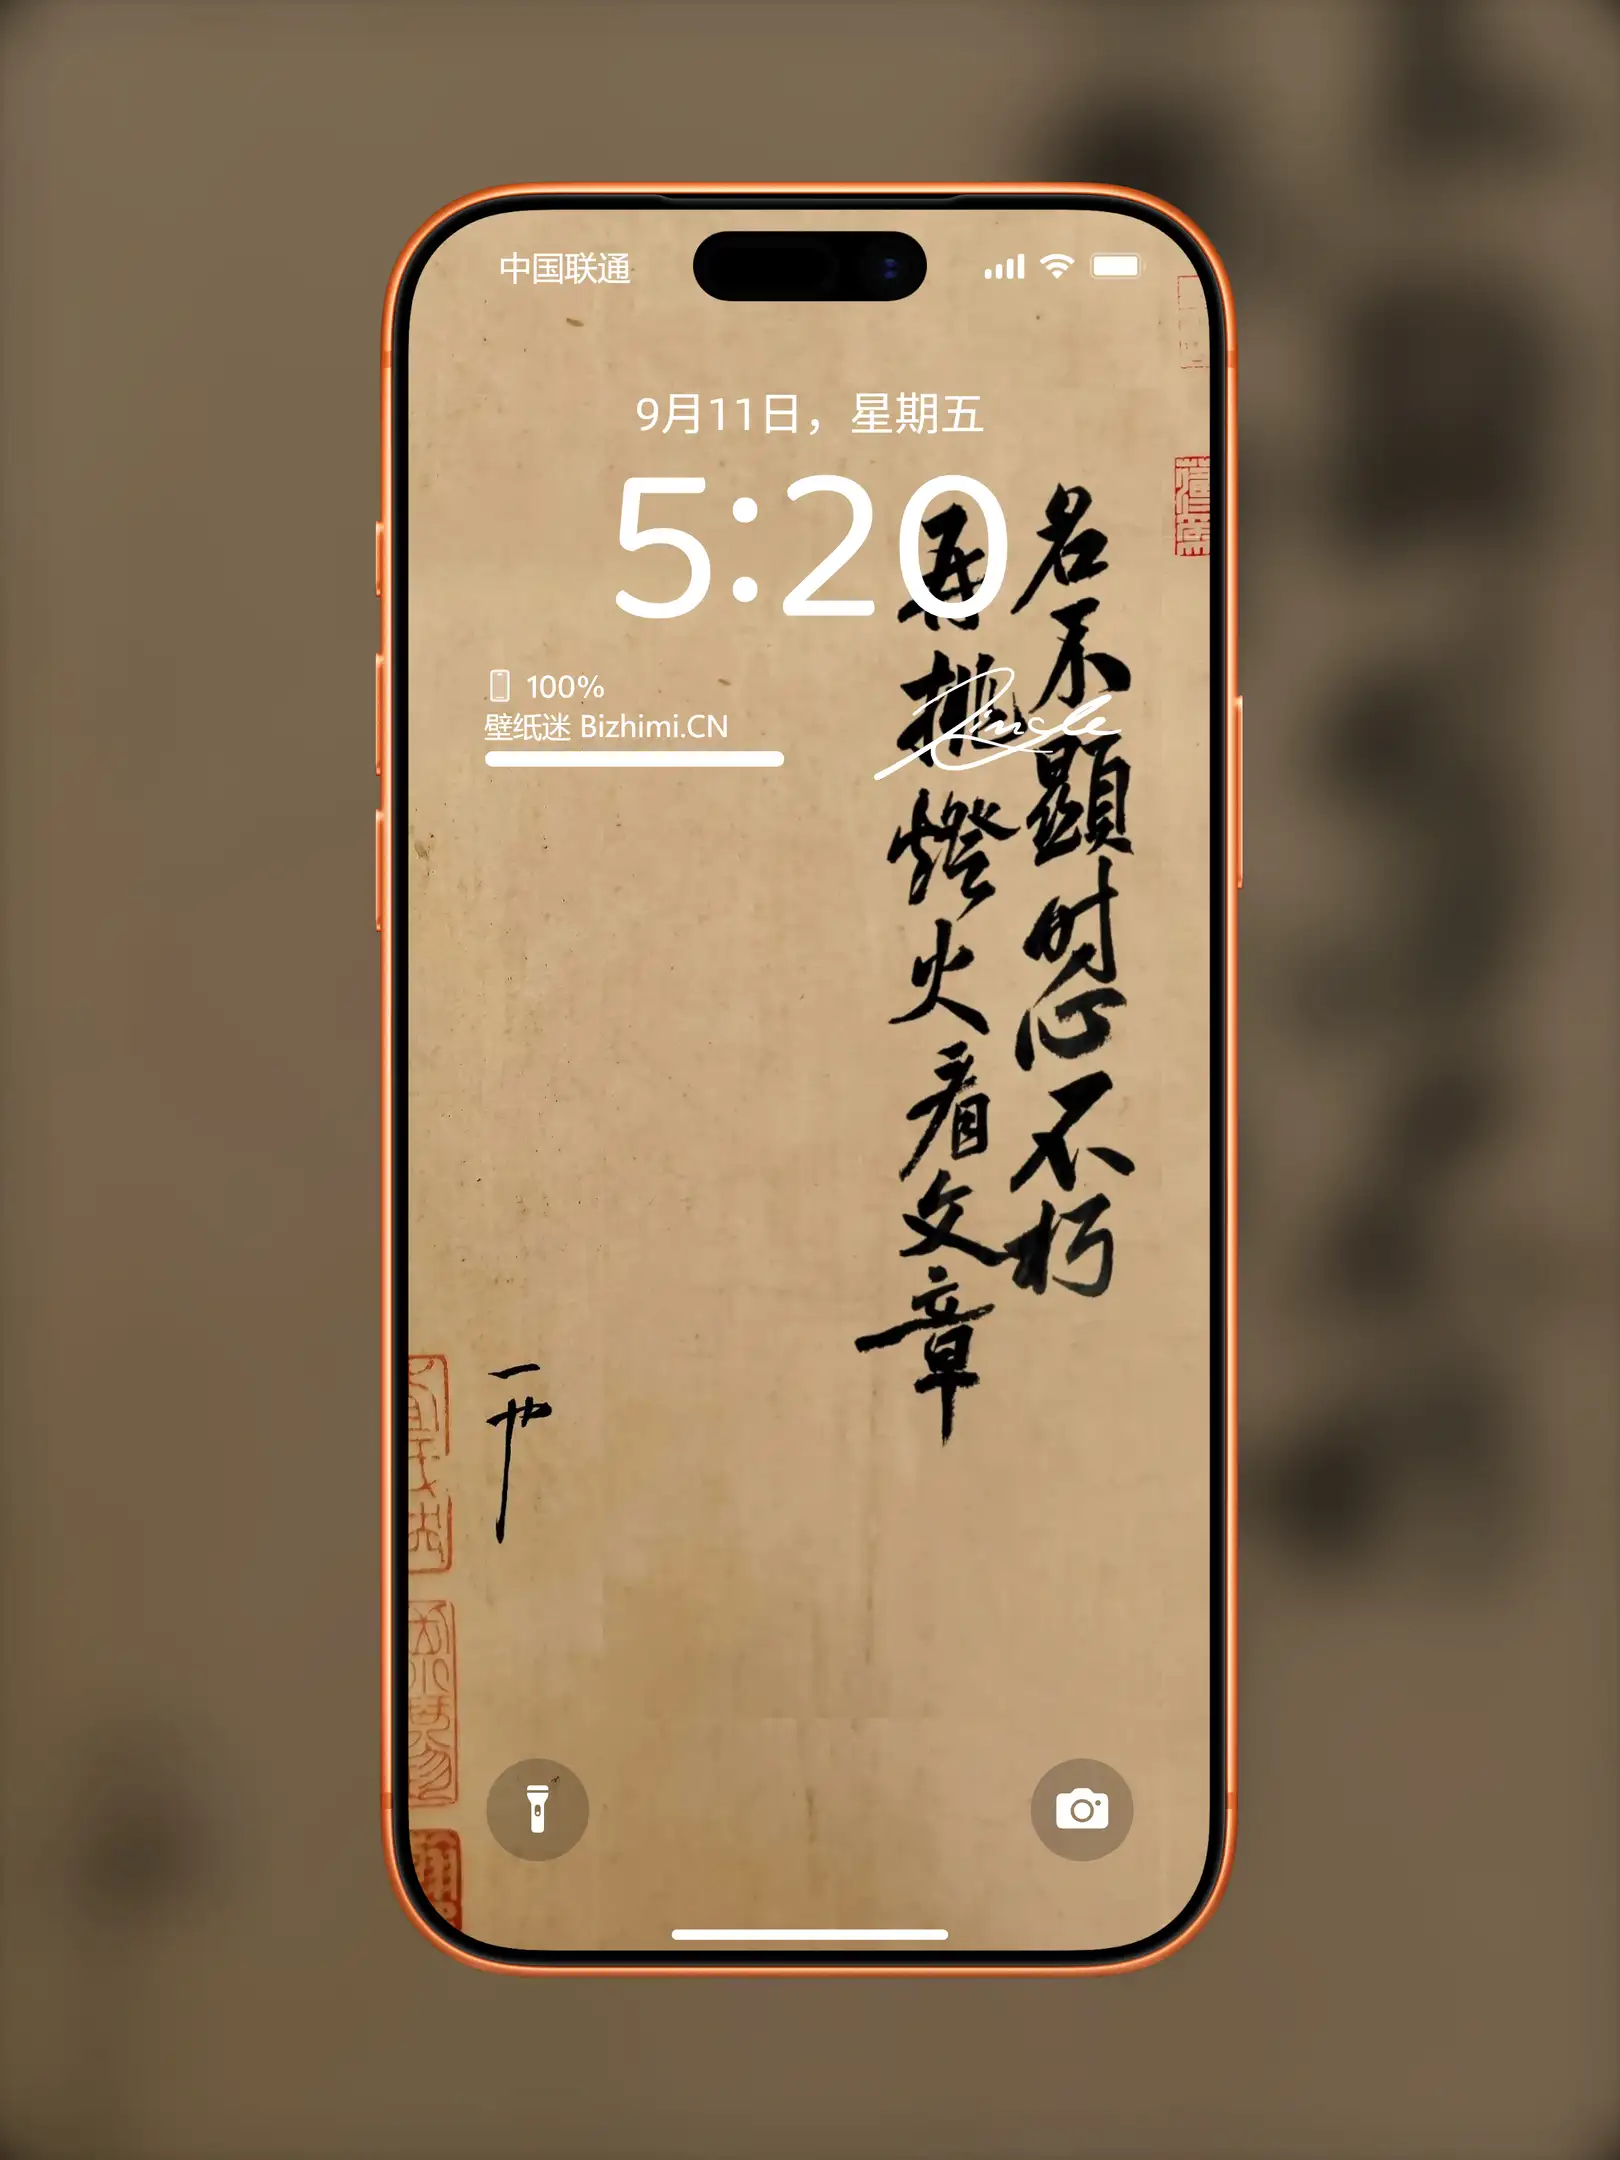 中国联通
9月11日，星期五
5:20
100%
壁纸迷 Bizhimi.CN
名不顯时心不朽
再挑燈火看文章